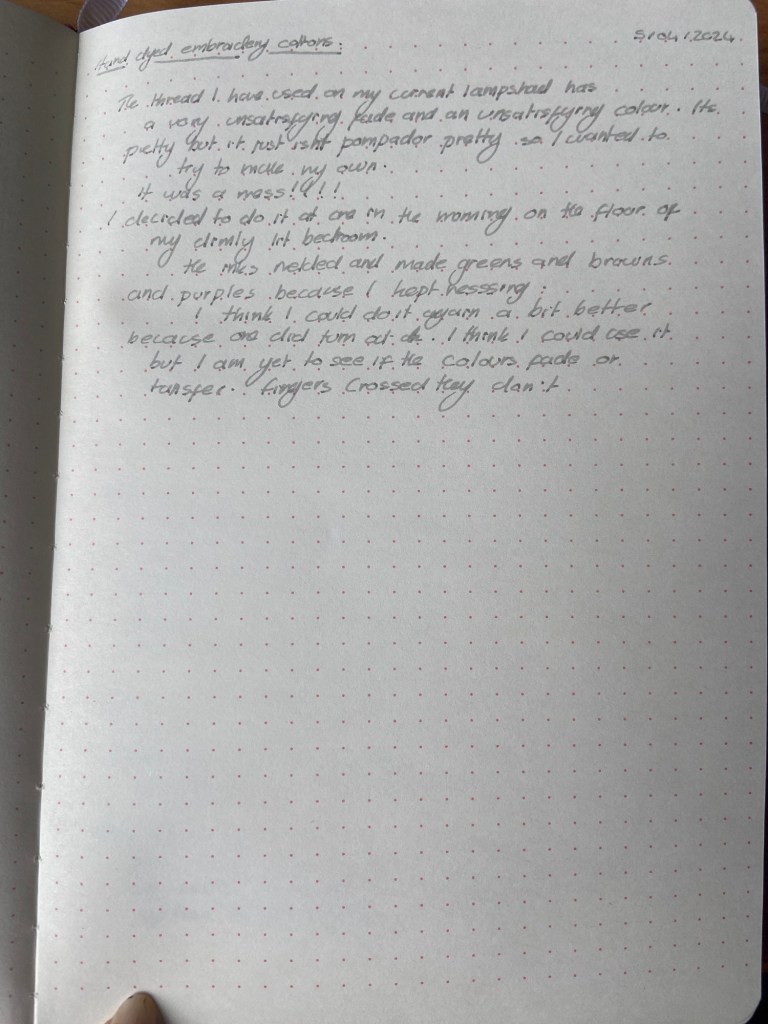 Hand dyed embroidery cottons: 5/04/2024.
The thread I have used on my current lampshad has
a very unsatisfying fade and an unsatisfying colour. Its
pretty but it just isnt pompador pretty so I wanted to
try to make my own.
it was a mess!!!!
I decided to do it at one in the morning on the floor of
my dimly lit bedroom.
the inks melded and made greens and browns
and purples because I kept messing.
I think I could do it again a bit better
because one did turn out ok. I think I could use it
but I am yet to see if the colours fade or
tansfer. fingers crossed they don't